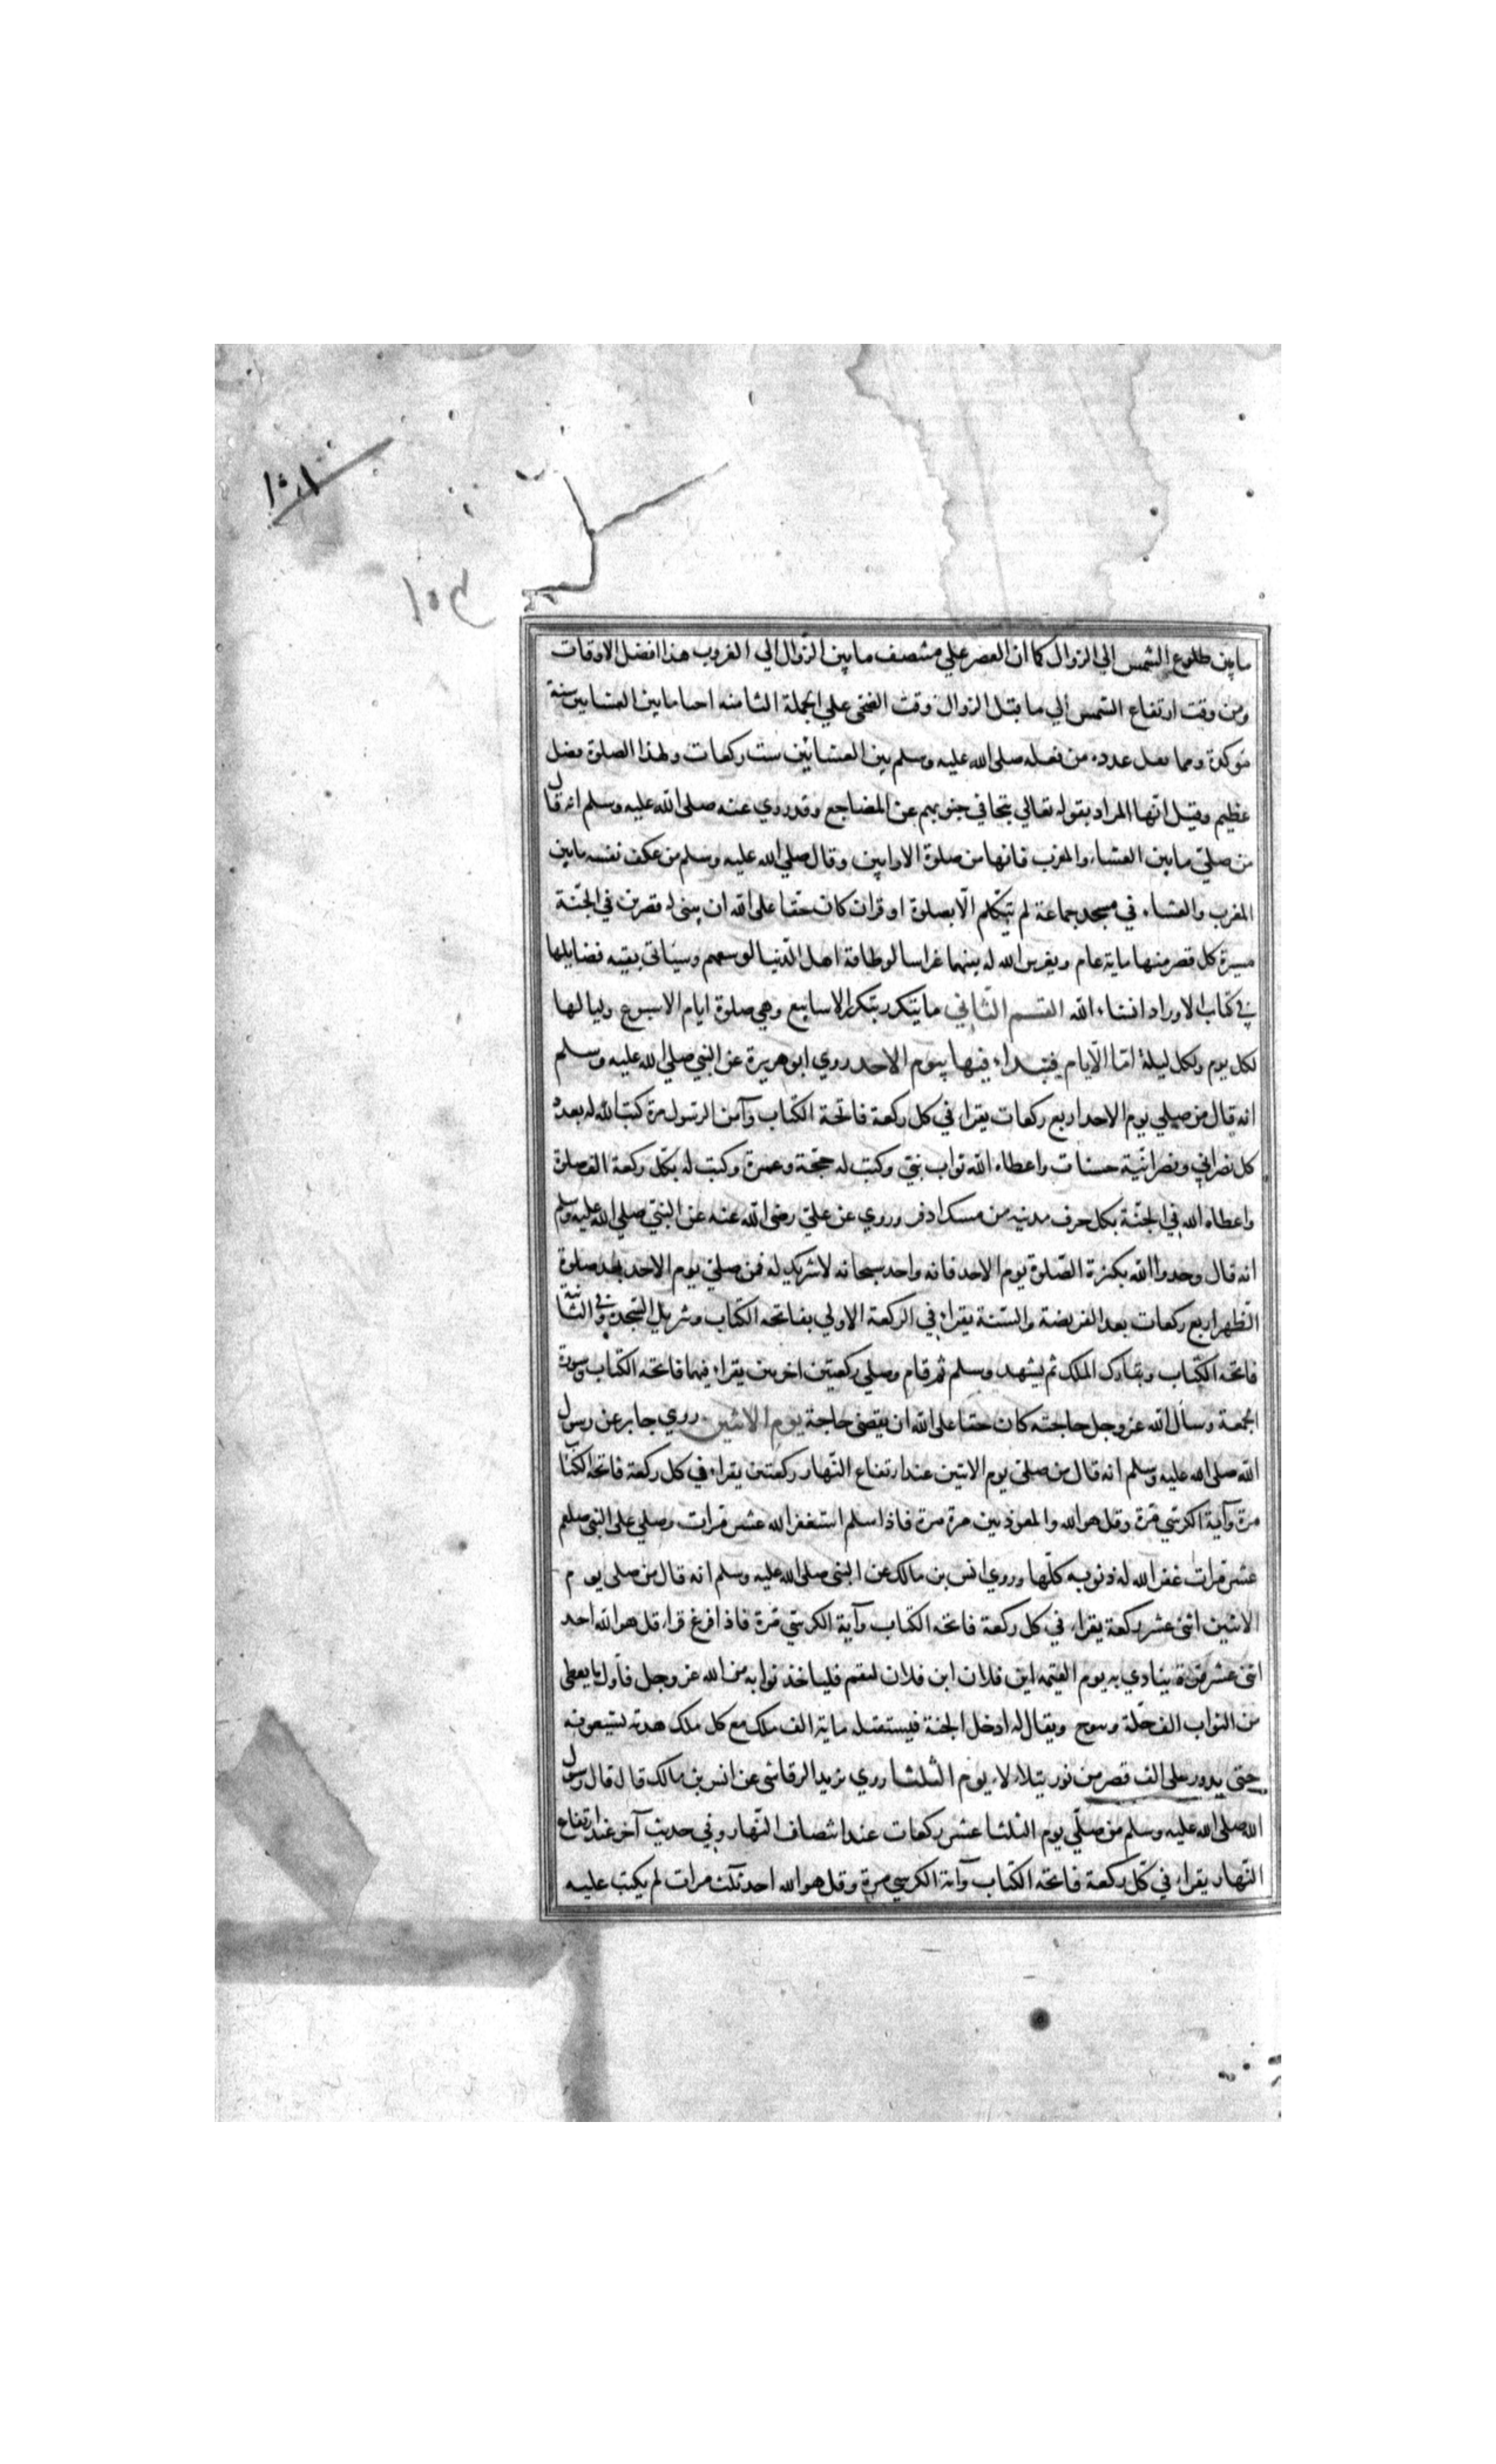 ١٠١
١٥٣
ما بين طلوع الشمس الي الزوال كما ان العصر علي منتصف ما بين الزوال الي الغروب هذا افضل الاوقات
ومن وقت ارتفاع الشمس الي ما قبل الزوال وقت الضحى علي الجملة الثامنه احيا ما بين العشايين سنة
موكدة ومما نقل عدده من فعله صلى الله عليه وسلم بين العشائين ست ركعات ولهذا الصلوة فضل
عظيم وقيل انها المراد بقوله تعالي تتجافي جنوبهم عن المضاجع وقد روي عنه صلى الله عليه وسلم انه قال
من صلي ما بين العشاء والمغرب فانها من صلوة الاوابين وقال صلي الله عليه وسلم من عكف نفسه ما بين
المغرب والعشاء في مسجد جماعة لم يتكلم الا بصلوة او قران كان حقا على الله ان يبنى له قصرين في الجنة
مسيرة كل قصر منها ماية عام ويغرس الله له بينهما غراسا لو طافه اهل الدنيا لوسعهم وسياتى بقيه فضايلها
في كتاب الاوراد انشاء الله القسم الثاني ما يتكرر بتكرر الاسابيع وهي صلوة ايام الاسبوع ولياليها
لكل يوم ولكل ليلة امّا الايام فيبداء فيها بيوم الاحد روي ابو هريرة عن النبي صلي الله عليه وسلم
انه قال من صلي يوم الاحد اربع ركعات يقراء في كل ركعة فاتحة الكتاب وآمن الرسول مرة كتب الله له بعدد
كل نصراني ونصرانية حسنات واعطاه الله ثواب نبي وكتب له حجة وعمرة وكتب له بكل ركعة الف صلوة
واعطاه الله في الجنة بكل حرف مدينه من مسك اذفر وروي عن علي رضى الله عنه عن النبي صلي الله عليه وسلم
انه قال وحدوا الله بكثرة الصلوة يوم الاحد فانه واحد سبحانه لا شريك له فمن صلي يوم الاحد بعد صلوة
الظهر اربع ركعات بعد الفريضة والسنة يقراء في الركعة الاولي بفاتحه الكتاب وتنزيل السجدة وفي الثانية
فاتحه الكتاب وتبارك الملك ثم يشهد وسلم ثم قام وصلي ركعتين اخرين يقراء فيهما فاتحه الكتاب وسورة
الجمعة وسأل الله عز وجل حاجته كان حقا على الله ان يقضى حاجة يوم الاثنين روي جابر عن رسول
الله صلى الله عليه وسلم انه قال من صلي يوم الاثنين عند ارتفاع النهار ركعتين يقراء في كل ركعة فاتحه الكتاب
مرة وآية الكرسي مرة وقل هو الله والمعوذتين مرة مرة فاذا سلم استغفر الله عشر مرات وصلي على النبي صلعم
عشر مرات غفر الله له ذنوبه كلها وروي انس بن مالك عن النبى صلى الله عليه وسلم انه قال من صلى يوم
الاثنين اثنى عشر ركعة يقراء في كل ركعة فاتحه الكتاب وآية الكرسي مرة فاذا فرغ قراء قل هو الله احد
اثنى عشر مرة ينادي به يوم القيمه اين فلان ابن فلان ليقم فلياخذ ثوابه من الله عز وجل فاول ما يعطى
من الثواب الف حلة ويتوج ويقال له ادخل الجنة فيستقبله ماية الف ملك مع كل ملك هدية يشيعونه
حتى يدور على الف قصر من نور يتلاءلاء يوم الثلثا وروي يزيد الرقاشي عن انس بن مالك قال قال رسول
الله صلى الله عليه وسلم من صلي يوم الثلثا عشر ركعات عند انتصاف النهار وفي حديث آخر عند ارتفاع
النهار يقراء في كل ركعة فاتحه الكتاب وآية الكرسي مرة وقل هو الله احد ثلث مرات لم يكتب عليه